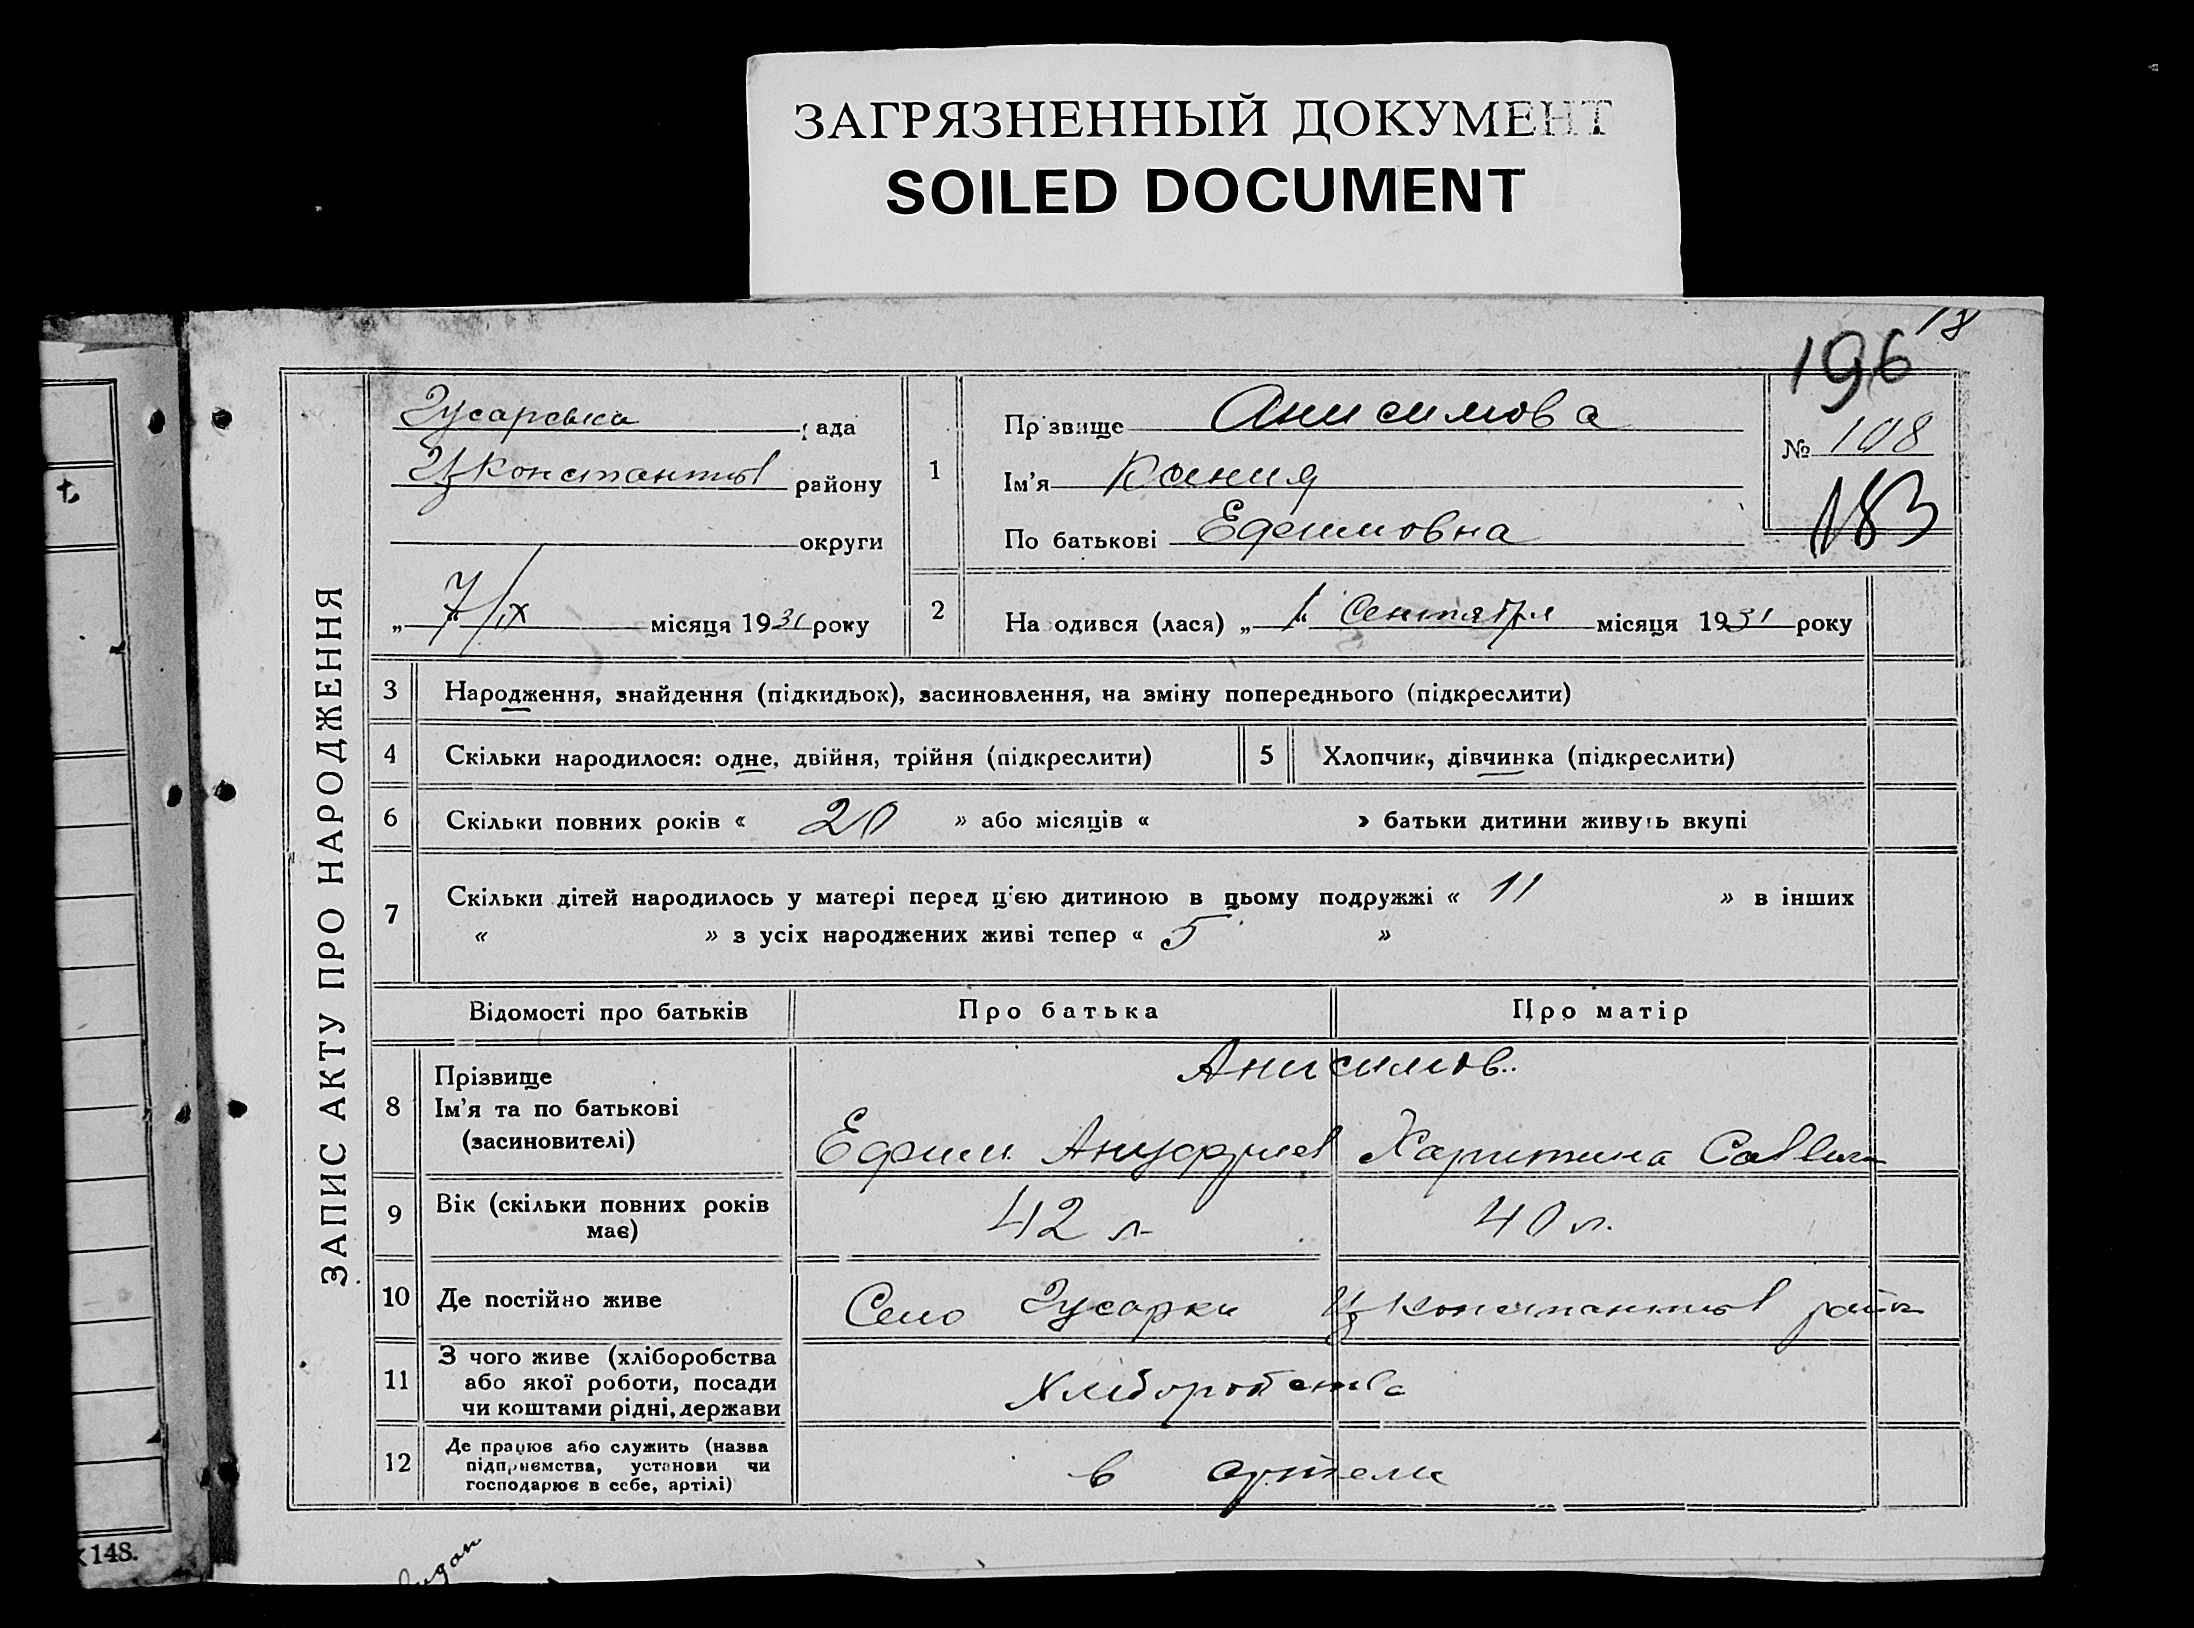 ЗАГРЯЗНЕННЫЙ ДОКУМЕНТ
SOILED DOCUMENT
18
196
ЗАПИС АКТУ ПРО НАРОДЖЕННЯ
Гусарська рада
Цконстантов району
округи
„ 7/IX місяця 1931 року
1
Прізвище Анисимова
Ім'я Ксения
По батькові Ефимовна
№ 108
183
2 Народився (лася) „ 1 " Сентября місяця 1931 року
3 Народження, знайдення (підкидьок), засиновлення, на зміну попереднього (підкреслити)
4 Скільки народилося: одне, двійня, трійня (підкреслити)
5 Хлопчик, дівчинка (підкреслити)
6 Скільки повних років « 20 » або місяців « » батьки дитини живуть вкупі
7 Скільки дітей народилось у матері перед цією дитиною в цьому подружжі « 11 » в інших
« » з усіх народжених живі тепер « 5 »
Відомості про батьків Про батька Про матір
8 Прізвище
Ім'я та по батькові
(засиновителі)
Анисимов
Ефим Ануфриев Харитина
9 Вік (скільки повних років
має)
42 л. 40 л.
10 Де постійно живе Село Гусарки Цконстантов район
11 З чого живе (хліборобства
або якої роботи, посади
чи коштами рідні, держави
Хліборобства
12 Де працює або служить (назва
підприємства, установи чи
господарює в себе, артілі)
в артели
148.